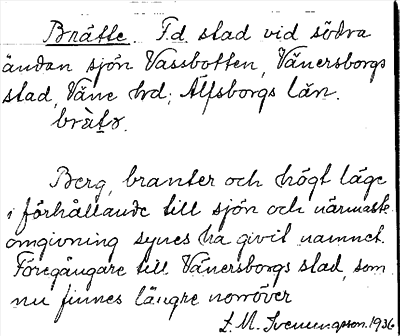 Brätte. F.d. stad vid södra
ändan sjön Vassbotten, Vänersborgs
stad, Väne hrd; Älfsborgs län.
Berg, branter och högt läge
i förhållande till sjön och närmaste
omgivning synes ha givit namnet.
Föregångare till Vänersborgs stad, som
nu finnes längre norröver
L.M. Svenungsson. 1936